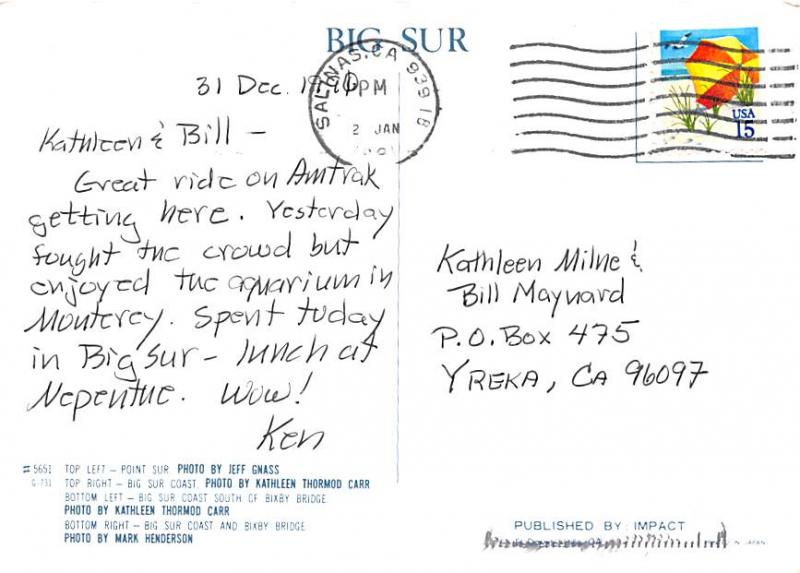 BIG SUR
31 Dec. 1990
SALINAS, CA 93918
PM
2 JAN
USA
15
Kathleen & Bill -
Great ride on Amtrak
getting here. Yesterday
fought the crowd but
enjoyed the aquarium in
Monterey. Spent today
in Big Sur - lunch at
Nepenthe. Wow!
Ken
Kathleen Milne &
Bill Maynard
P.O. Box 475
YREKA, CA 96097
#5651 TOP LEFT – POINT SUR PHOTO BY JEFF GNASS
G-731 TOP RIGHT – BIG SUR COAST PHOTO BY KATHLEEN THORMOD CARR
BOTTOM LEFT – BIG SUR COAST SOUTH OF BIXBY BRIDGE
PHOTO BY KATHLEEN THORMOD CARR
BOTTOM RIGHT – BIG SUR COAST AND BIXBY BRIDGE
PHOTO BY MARK HENDERSON
PUBLISHED BY: IMPACT
IN JAPAN